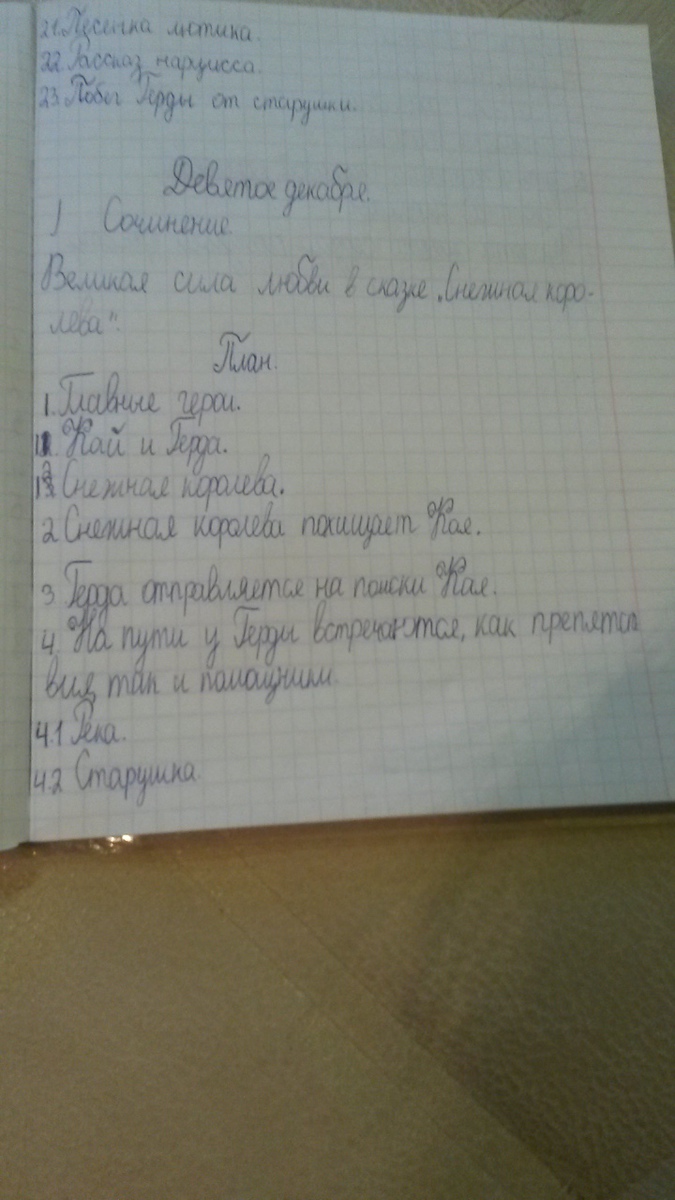 21. Песенка лютика.
22. Рассказ нарцисса.
23. Побег Герды от старушки.
Девятое декабря.
Сочинение
Великая сила любви в сказке „Снежная коро-
лева".
План.
1. Главные герои.
1.1. Кай и Герда.
1.2. Снежная королева.
2 Снежная королева похищает Кая.
3 Герда отправляется на поиски Кая.
4. На пути у Герды встречаются, как препятст
вия, так и помощники.
4.1 Река.
4.2 Старушка